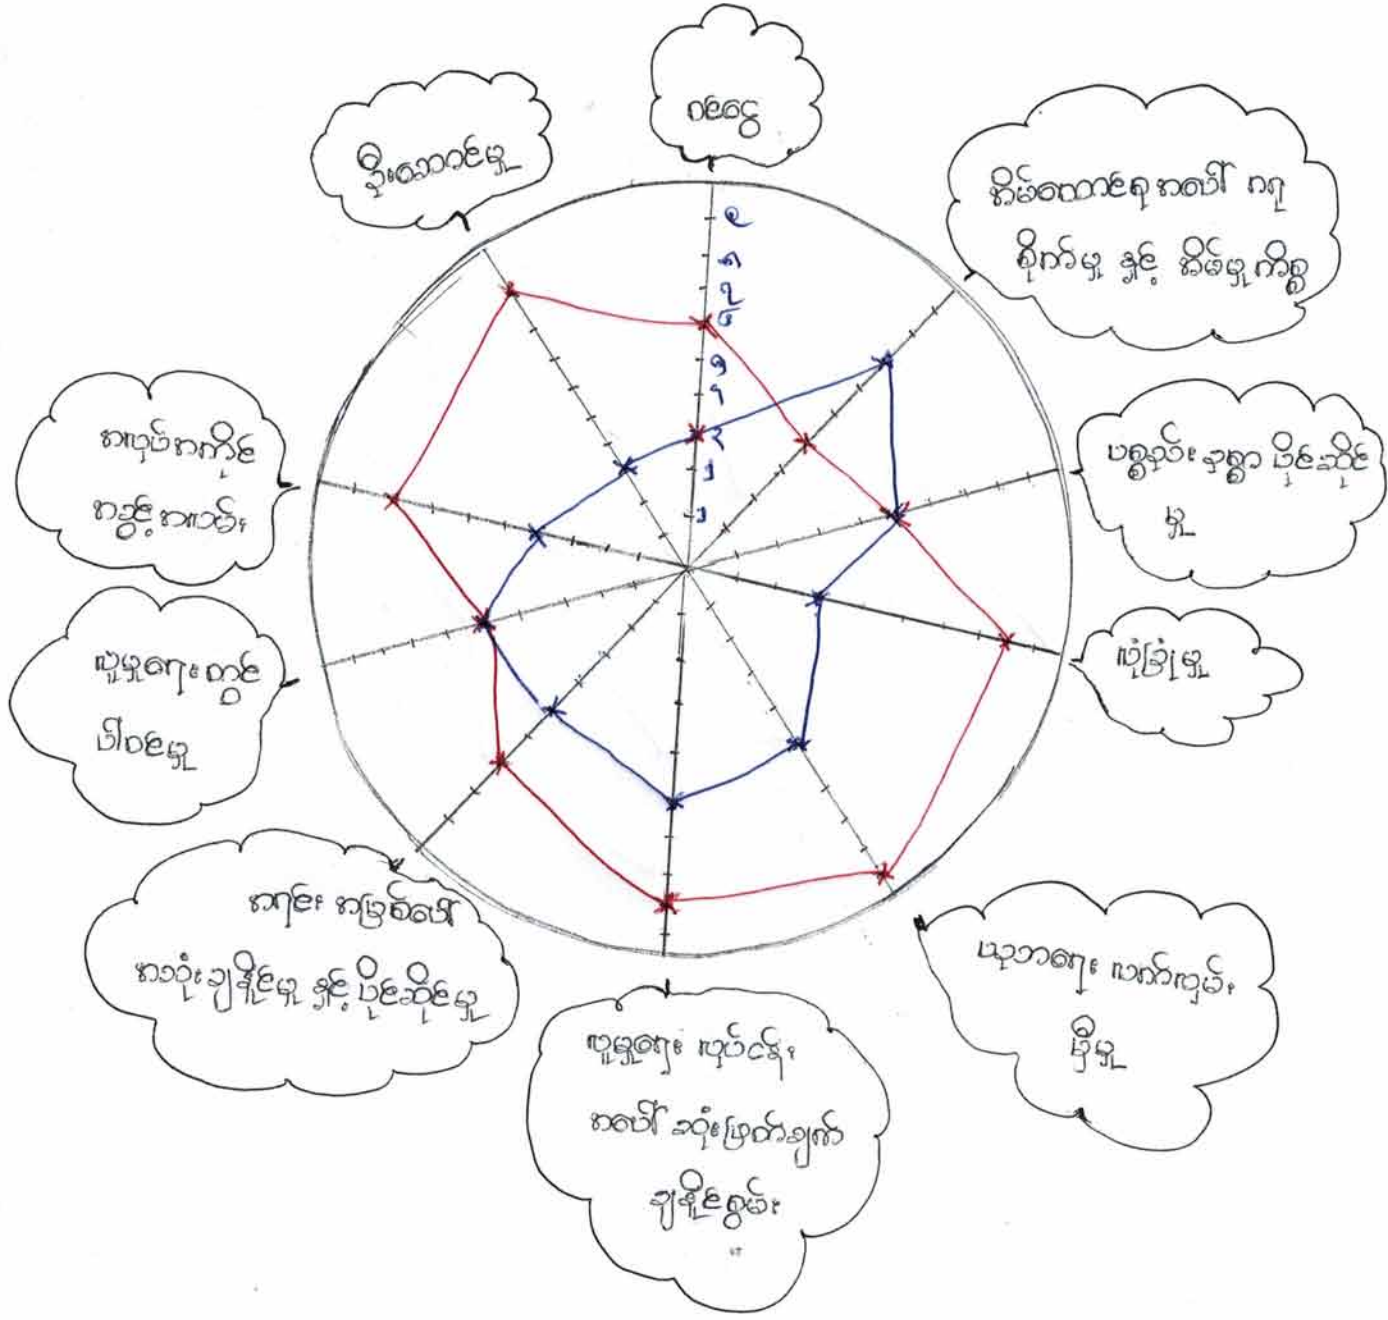 ဝင်ငွေ
အိမ်ထောင်ရေးအပေါ် ဂရု
စိုက်မှု နှင့် အိမ်မှုကိစ္စ
ပစ္စည်းဥစ္စာ ပိုင်ဆိုင်
မှု
လုံခြုံမှု
ယုဘရေး လက်လှမ်း
မှီမှု
လူမှုရေး လုပ်ငန်း
အပေါ် ဆုံးဖြတ်ချက်
ချနိုင်စွမ်း
အရင်း အမြစ်ပေါ်
အသုံးချနိုင်မှု နှင့် ပိုင်ဆိုင်မှု
လူမှုရေးတွင်
ပါဝင်မှု
အလုပ်အကိုင်
အခွင့်အလမ်း
ဦးဆောင်မှု
၉
၈
၇
၆
၅
၄
၃
၂
၁